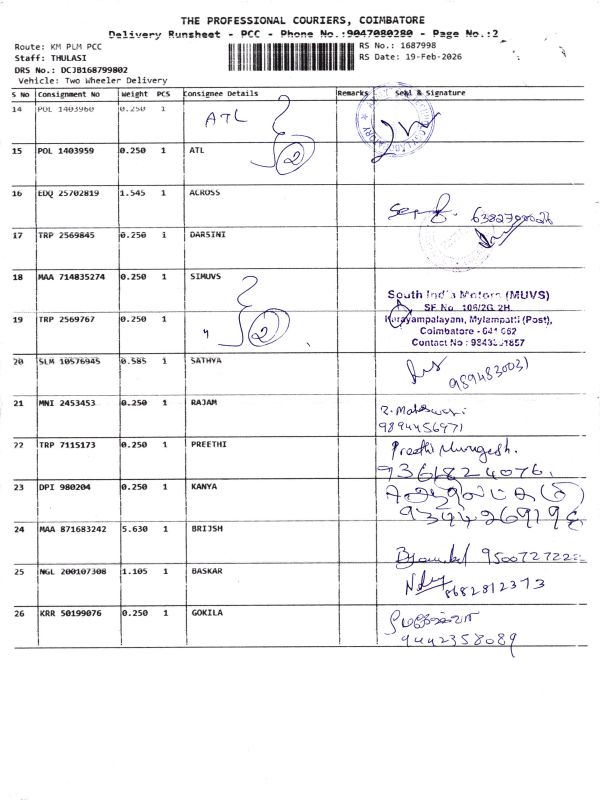 THE PROFESSIONAL COURIERS, COIMBATORE
Delivery Runsheet - PCC - Phone No.:9047080280 - Page No.:2
Route: KM PLM PCC
RS No.: 1687998
Staff: THULASI
RS Date: 19-Feb-2026
DRS No.: DCJB168799802
Vehicle: Two Wheeler Delivery
S No Consignment No Weight PCS Consignee Details Remarks Seal & Signature
14 POL 1403960 0.250 1 ATL
2
15 POL 1403959 0.250 1 ATL
16 EDQ 25702819 1.545 1 ACROSS
17 TRP 2569845 0.250 1 DARSINI
18 MAA 714835274 0.250 1 SIMUVS
South India Motors (MUVS)
SF.No. 106/2G, 2H,
Karayampalayam, Mylampatti (Post),
Coimbatore - 641 062
19 TRP 2569767 0.250 1 " 2
20 SLM 10576945 0.585 1 SATHYA
9894830031
21 MNI 2453453 0.250 1 RAJAM
R. Maheswari
9894456971
22 TRP 7115173 0.250 1 PREETHI
Preethi Murugesh.
9361824076.
23 DPI 980204 0.250 1 KANYA
24 MAA 871683242 5.630 1 BRIJSH
25 NGL 200107308 1.105 1 BASKAR
8682812373
26 KRR 50199076 0.250 1 GOKILA
9442358089